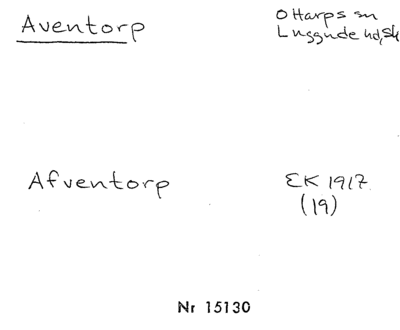 Aventorp
O Harps sn
Luggude hd, Sk
Afventorp
EK 1917
(19)
Nr 15130